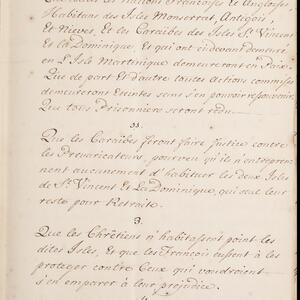 Que toutes les Nations Francoises et Angloises,
Habitans des Isles Monserrat, Antegois,
Et Nieves, Et les Caraibes des Isles St. Vincent
Et La Dominique, Et qui ont cy devant demeuré
en L'Isle Martinique demeureront en Paix.
Que de part Et d'autre toutes actions commises
demeureront Eteintes sens s'en pouvoir ressouvenir
Que tous Prisonniers seront redu
Que les Caraibes feront faire Justice contre
les Prevaricateurs, pourveu qu'ils n'entrepren
nent aucunement d'habituer les deux Isles
de St. Vincent Et La Dominique, qui seul leur
reste pour Retraite.
3.
Que les Chrêtiens n'habitassent point les
dites Isles, Et que les Francois eussent à les
proteger contre Ceux qui voudroient
s'en emparer à leur prejudice.